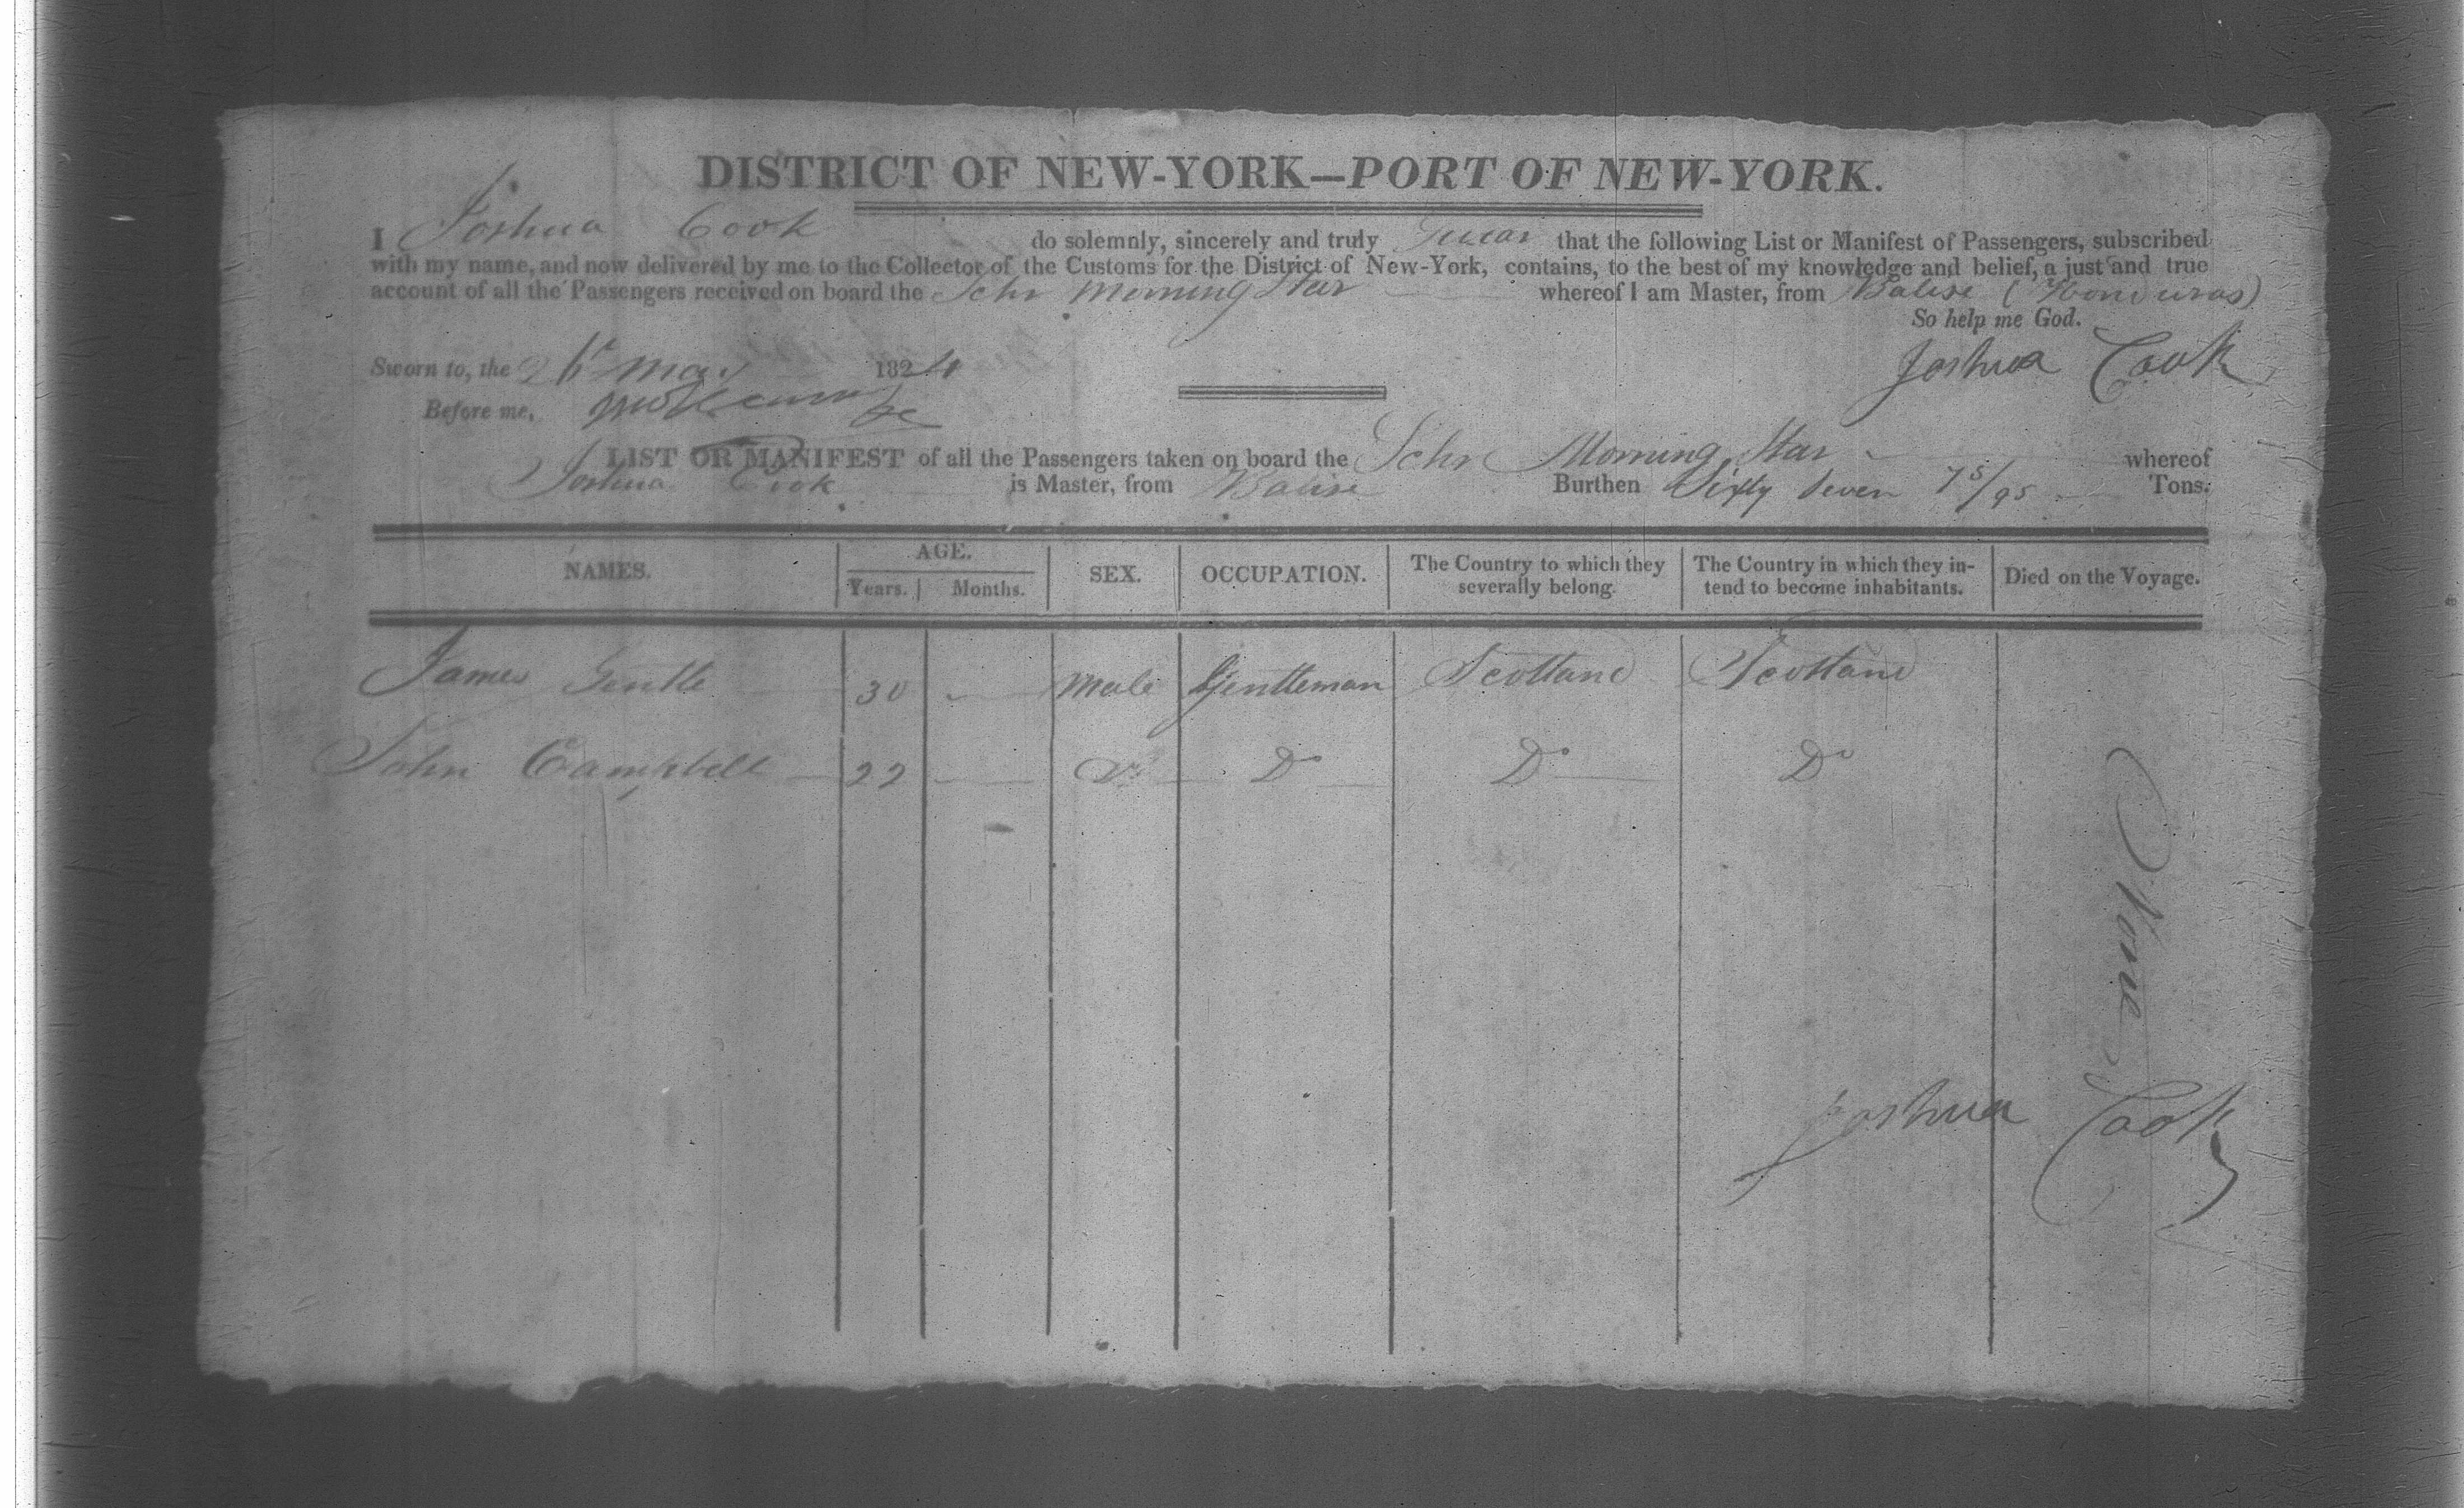 DISTRICT OF NEW-YORK—PORT OF NEW-YORK.
I Joshua Cook do solemnly, sincerely and truly Swear that the following List or Manifest of Passengers, subscribed
with my name, and now delivered by me to the Collector of the Customs for the District of New-York, contains, to the best of my knowledge and belief, a just and true
account of all the Passengers received on board the Schr Morning Star whereof I am Master, from Balise (Honduras)
So help me God.
Sworn to, the May 1824 Joshua Cook
Before me,
LIST OR MANIFEST of all the Passengers taken on board the Schr Morning Star whereof
Joshua Cook is Master, from Balise Burthen Sixty Seven 75/95 Tons.
NAMES. AGE. Years. Months. SEX. OCCUPATION. The Country to which they severally belong. The Country in which they in-tend to become inhabitants. Died on the Voyage.
James Gentle 30 — Male Gentleman Scotland Scotland
John Campbell — 22 — Do Do Do Do
None
Joshua Cook